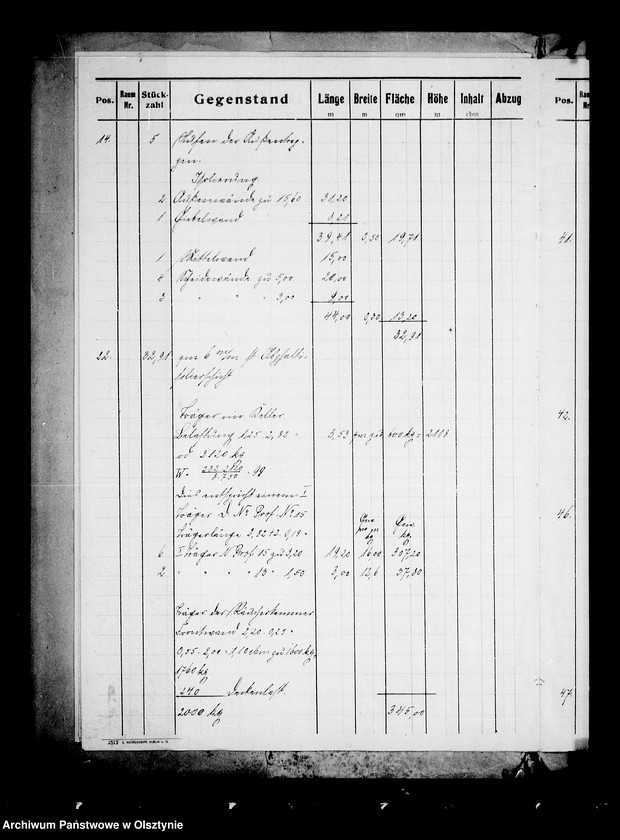 Pos. Raum Nr. Stück-zahl Gegenstand Länge m Breite m Fläche qm Höhe m Inhalt cbm Abzug Pos.
14. 5 Stufen der
gen.
Isolierung
2 Außenwände zu 15,60 31,20
1 Giebelwand 8,21
39,41 0,50 19,71 41.
1 Mittelwand 15,00
4 Scheidewände zu 5,00 20,00
3 " " " 3,00 9,00
44,00 0,30 13,20
32,91
22. 32,91 qm 6 m/m st Asphalti-
solierschicht
Träger im Keller 42.
Belastung 1,25 · 2,82 = 3,53 qm zu 600 kg = 2118
rd 2120 kg
W =
Dies entspricht einem I 46.
Träger D. N° Prof. N° 15
Trägerlänge 2,82 + 2 · 0,19 =
6 I Träger N Prof 15 zu 3,20 19,20 16,00 307,20
2 " " " 13 " 1,50 3,00 12,6 37,80
Träger der Räucherkammer
Frontwand 2,20 · 0,25 =
0,55 · 2,00 = 1,10 cbm zu 1600 kg
1760 kg
240 Deckenlast 47.
2000 kg 345,00
Archiwum Państwowe w Olsztynie